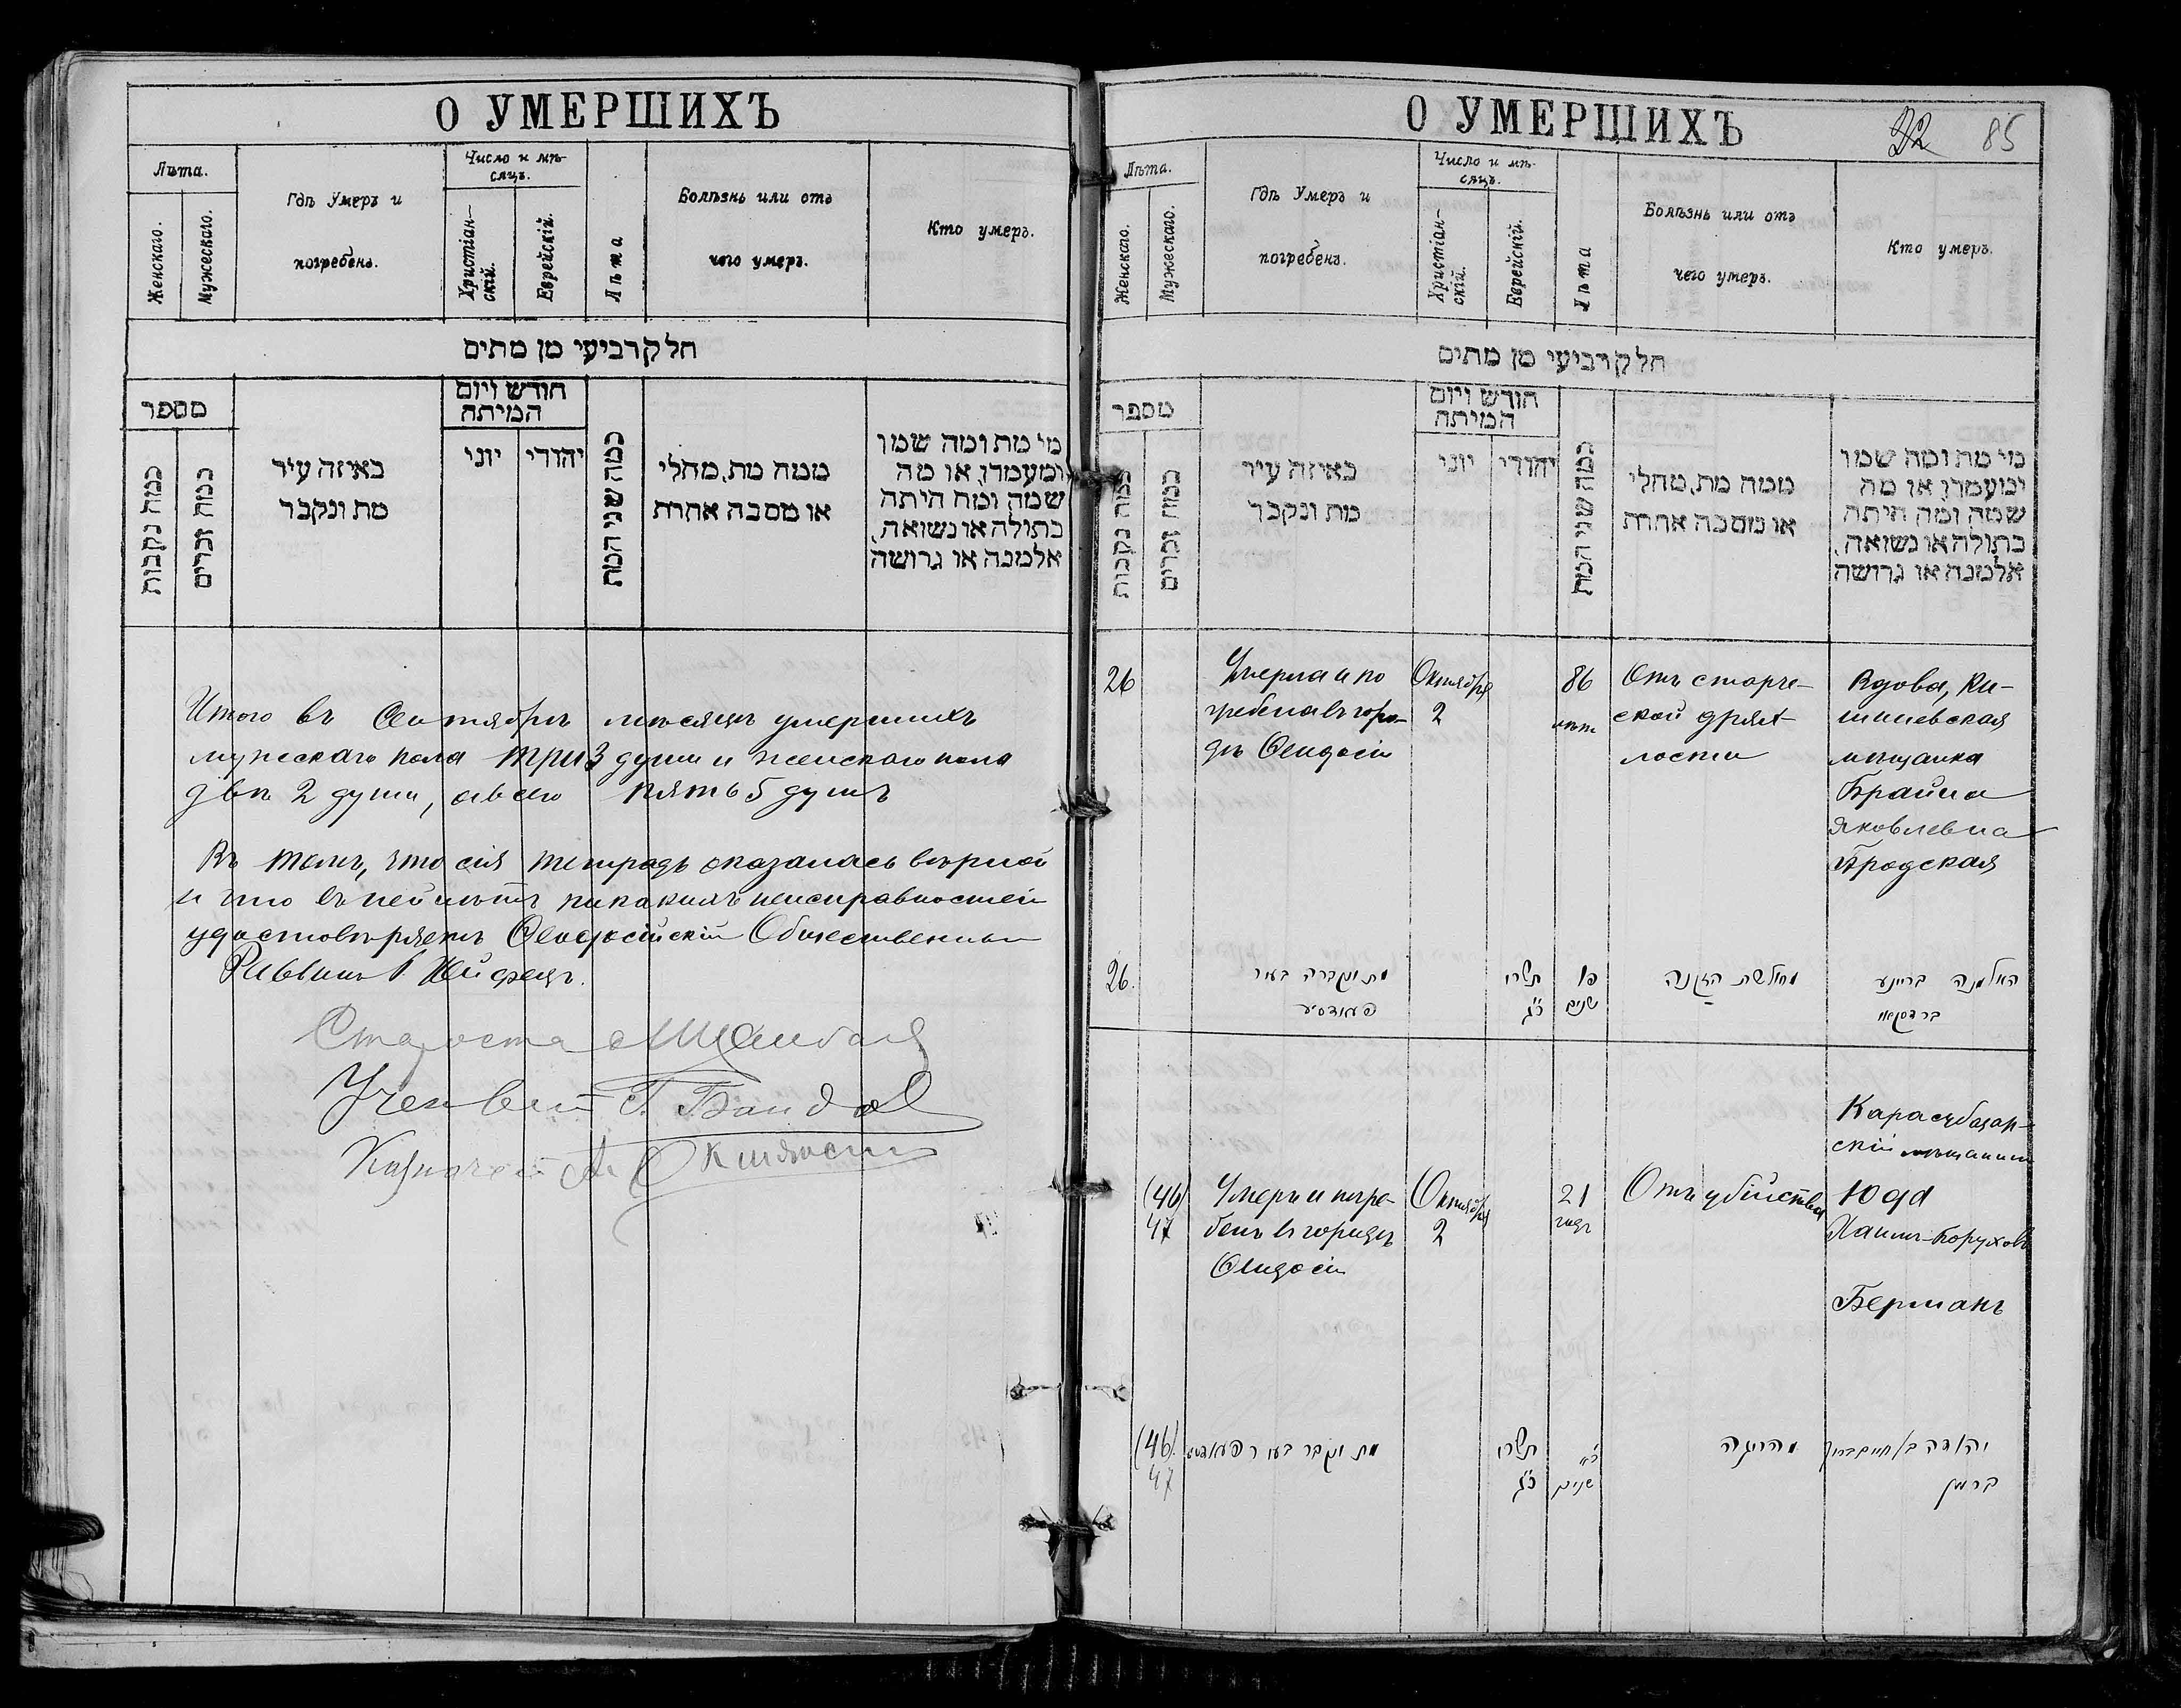 О УМЕРШИХЪ
Лѣта.
Женскаго.
Мужескаго.
Гдѣ Умеръ и
погребенъ.
Число и мѣ-
сяцъ.
Христіан-
скій.
Еврейскій.
Лѣта
Болѣзнь или отъ
чего умеръ.
Кто умеръ.
חלק רביעי מן מתים
מספר
כמה נקבות
כמה זכרים
באיזה עיר
מת ונקבר
חודש ויום
המיתה
יוני
יהודי
כמה שני המת
ממה מת, מחלי
או מסבה אחרת
מי מת ומה שמו
ומעמדו, או מה
שמה ומה היתה
בתולה או נשואה,
אלמנה או גרושה
Итого въ Сентябрѣ мѣсяцѣ умершихъ
мужескаго пола три 3 души и женскаго пола
двѣ 2 души, а всего пять 5 душъ
Въ томъ, что сія тетрадь оказалась вѣрной
и что въ ней нѣтъ никакихъ неисправностей
удостовѣряетъ Ѳеодосійскій Общественный
Раввинъ
Староста
Ученый Г.
Казначей
О УМЕРШИХЪ
85
Лѣта.
Женскаго.
Мужескаго.
Гдѣ Умеръ и
погребенъ.
Число и мѣ-
сяцъ.
Христіан-
скій.
Еврейскій.
Лѣта
Болѣзнь или отъ
чего умеръ.
Кто умеръ.
חלק רביעי מן מתים
מספר
כמה נקבות
כמה זכרים
באיזה עיר
מת ונקבר
חודש ויום
המיתה
יוני
יהודי
כמה שני המת
ממה מת, מחלי
או מסבה אחרת
מי מת ומה שמו
ומעמדו, או מה
שמה ומה היתה
בתולה או נשואה,
אלמנה או גרושה
26
Умерла и по
гребена въ горо-
дѣ Ѳеодосіи
Октября
2
86
лѣтъ
Отъ старче-
ской дрях-
лости
Вдова, Ки-
шиневская
мѣщанка
Брайна
Яковлевна
Бродская
26.
מת ונקברה בעיר
פעאדסיע
תשרי
כ״ג
פו
שנים
מחלשת הזקנה
האלמנה בריינע
(46)
47
Умеръ и погре-
бенъ въ городѣ
Ѳеодосіи
Октября
2
21
годъ
Отъ убійства
Карасубазар-
скій мѣщанинъ
Юда
Хаимъ-Боруховъ
Берманъ
(46).
47
מת ונקבר בעיר
תשרי
כ״ג
כ״א
שנים
מהריגה
יהודה
ברמן